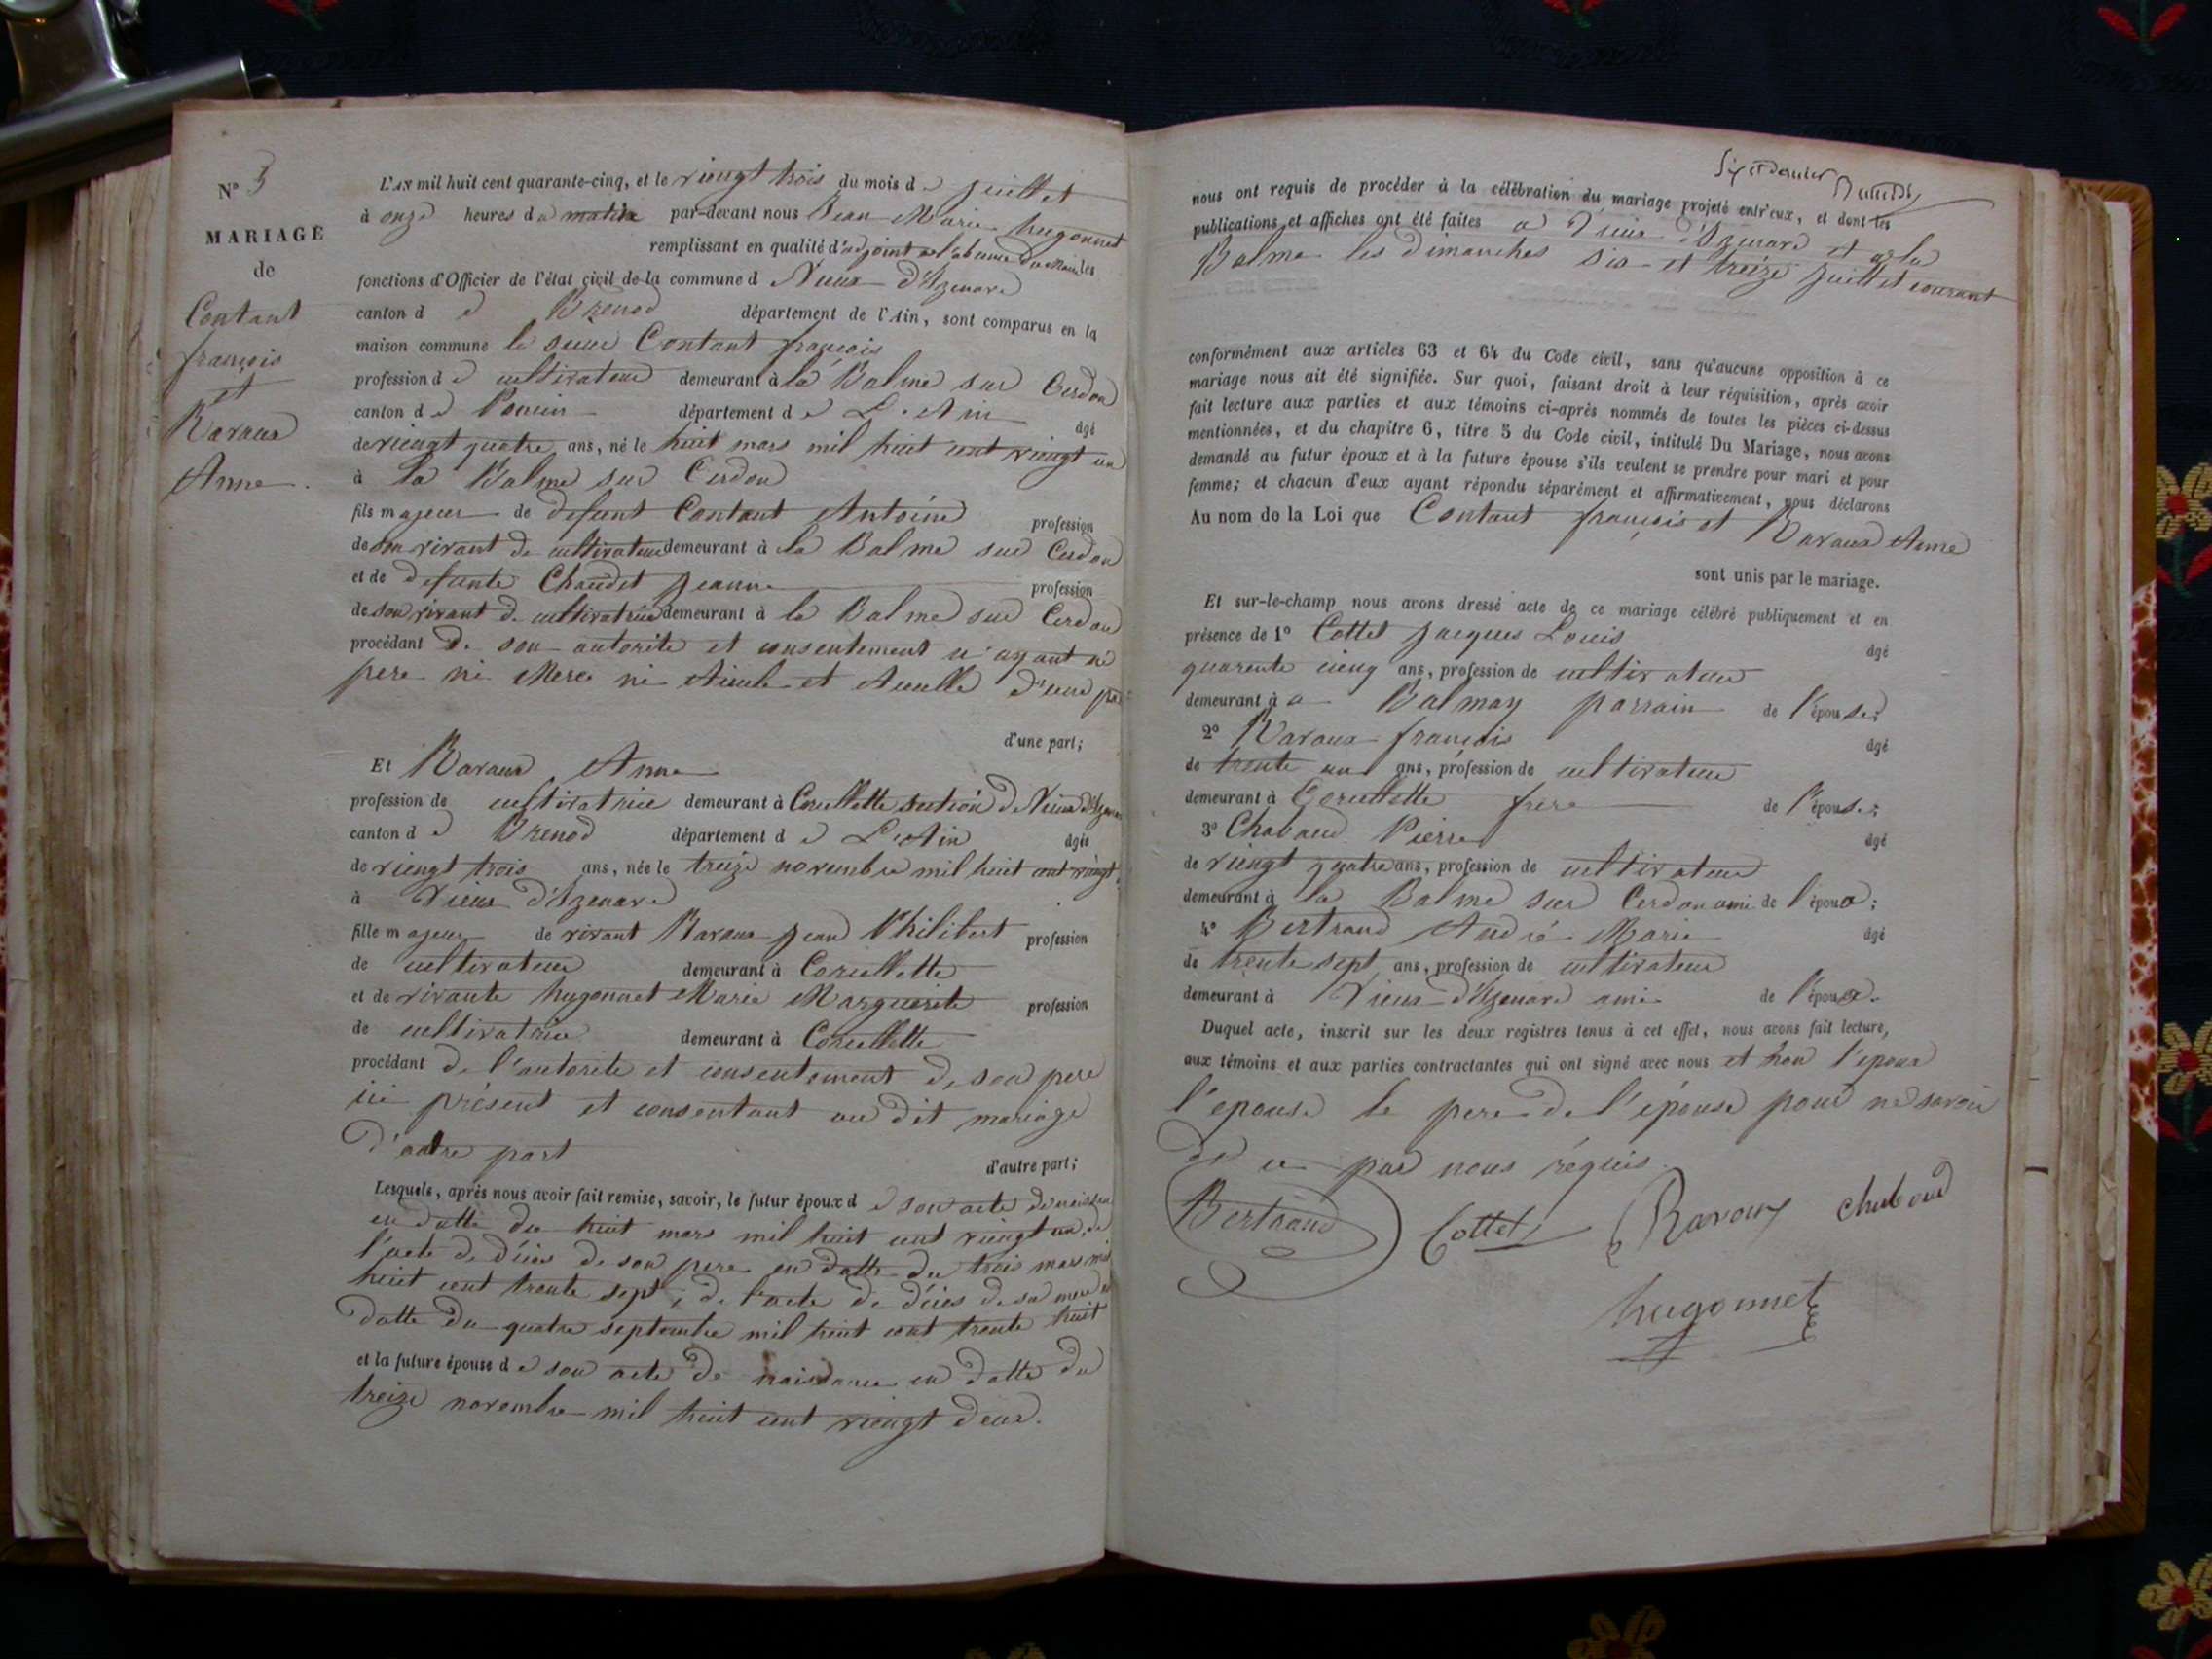 N° 3
MARIAGE
de
Contant
françois
et
Ravaux
Anne
L'AN mil huit cent quarante-cinq, et le viengt trois du mois de juillet
à onze heures du matin par-devant nous Jean Marie hugonnet
remplissant en qualité d'adjoint a l'absence du Maire les
fonctions d'Officier de l'état civil de la commune d Vieux d'Izenave
canton d e Brenod département de l'Ain, sont comparus en la
maison commune le sieur Contant françois
profession d e cultivateur demeurant à la Balme sur Cerdon
canton d e Poncin département d e L'Ain âgé
de viengt quatre ans, né le huit mars mil huit cent viengt un
à la Balme sur Cerdon
fils majeur de defunt Contant Antoine profession
de son vivant de cultivateur demeurant à la Balme sur Cerdon
et de defunte Chaudet jeanne profession
de son vivant de cultivatrice demeurant à la Balme sur Cerdon
procédant de son autorite et consentement n'ayant ni
pere ni Mere ni Aieule et Aieulle d'une part
d'une part;
Et Ravaux Anne
profession de cultivatrice demeurant à Corcellette section de Vieux d'Izenave
canton d e Brenod département d e L'Ain âgée
de viengt trois ans, née le treize novembre mil huit cent viengt
à Vieux d'Izenave
fille majeur de vivant Ravaux jean Philibert profession
de cultivateur demeurant à Corcellette
et de vivante hugonnet Marie Marguerite profession
de cultivatrice demeurant à Corcellette
procédant de l'autorite et consentement de son pere
ici présent et consentant au dit mariage
d'autre part
d'autre part;
Lesquels, après nous avoir fait remise, savoir, le futur époux d e son acte de naissance
en datte du huit mars mil huit cent viengt un, de
l'acte de décès de son pere en datte du trois mars mil
huit cent trente sept, de l'acte de décès de sa mere en
datte du quatre septembre mil huit cent trente huit
et la future épouse d e son acte de naissance en datte du
treize novembre mil huit cent viengt deux.
Six et dernier
nous ont requis de procéder à la célébration du mariage projeté entr'eux, et dont les
publications et affiches ont été faites a Vieux d'Izenave et a la
Balme les dimanches six et treize juillet courant
conformément aux articles 63 et 64 du Code civil, sans qu'aucune opposition à ce
mariage nous ait été signifiée. Sur quoi, faisant droit à leur réquisition, après avoir
fait lecture aux parties et aux témoins ci-après nommés de toutes les pièces ci-dessus
mentionnées, et du chapitre 6, titre 5 du Code civil, intitulé Du Mariage, nous avons
demandé au futur époux et à la future épouse s'ils veulent se prendre pour mari et pour
femme; et chacun d'eux ayant répondu séparément et affirmativement, nous déclarons
Au nom de la Loi que Contant françois et Ravaux Anne
sont unis par le mariage.
Et sur-le-champ nous avons dressé acte de ce mariage célébré publiquement et en
présence de 1° Cottet jacques Louis âgé
quarente cieng ans, profession de cultivateur
demeurant à a Balmay parrain de l'épouse;
2° Ravaux françois âgé
de trente un ans, profession de cultivateur
demeurant à Corcellette frere de l'épouse;
3° Chaboud Pierre âgé
de viengt quatre ans, profession de cultivateur
demeurant à la Balme sur Cerdon ami de l'époux;
4° Bertrand André Marie âgé
de trente sept ans, profession de cultivateur
demeurant à Vieux d'Izenave ami de l'époux.
Duquel acte, inscrit sur les deux registres tenus à cet effet, nous avons fait lecture,
aux témoins et aux parties contractantes qui ont signé avec nous et non l'epoux
l'epouse le pere de l'épouse pour ne savoir
de ce par nous réquis.
Bertrand Cottet Ravoux chaboud
hugonnet